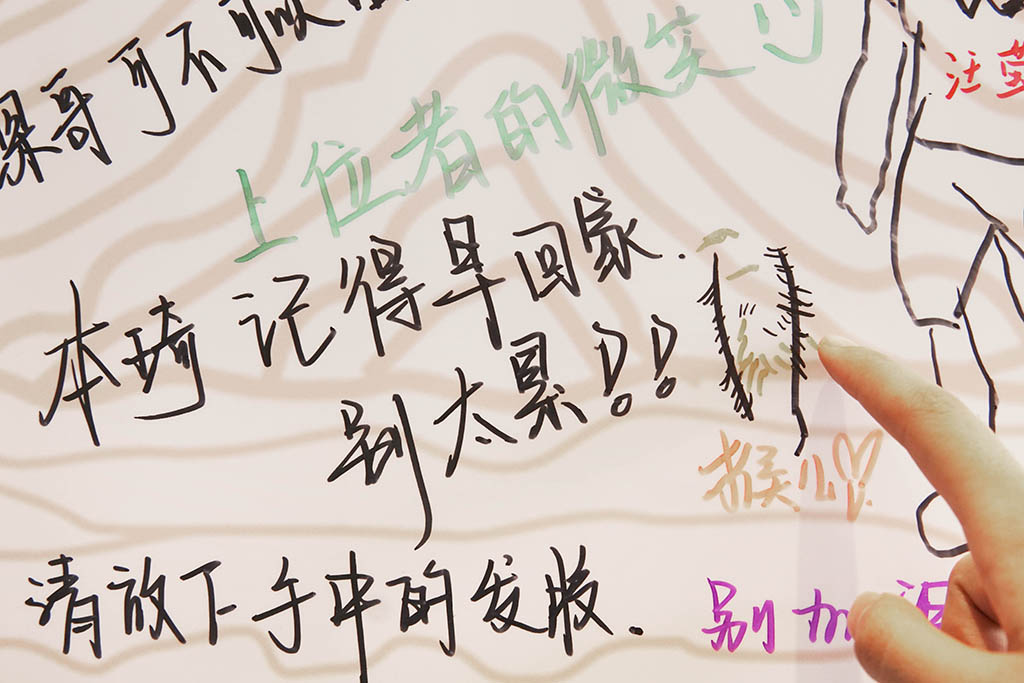 哥可不可以
上位者的微笑
汪莹
本琦 记得早回家.
别太累!!
请放下手中的发版.
别加班